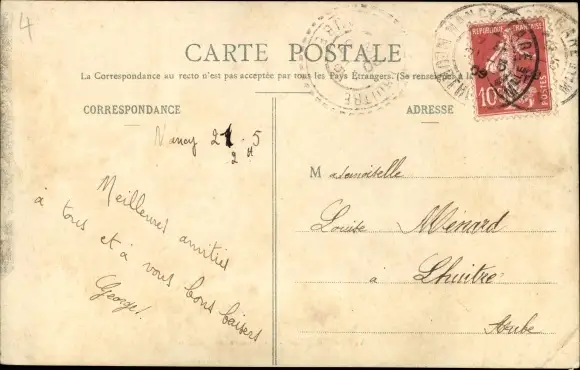 4
CARTE POSTALE
La Correspondance au recto n'est pas acceptée par tous les Pays Étrangers. (Se renseigner à la
CORRESPONDANCE
ADRESSE
Nancy 21 - 5
Meilleures amitiés
à tous et à vous bons baisers
Georges.
Mademoiselle
Louise Ménard
à Lhuitre
Aube
REPUBLIQUE FRANÇAISE
10
POSTES
NANCY
LHUITRE